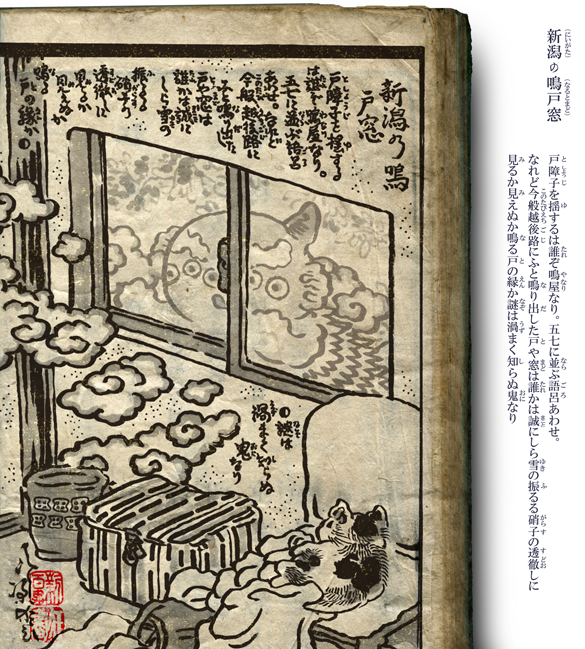 新潟の鳴戸窓
にいがた
なるとまど
戸障子を揺するは誰ぞ鳴屋なり。五七に並ぶ語呂あわせ。
なれど今般越後路にふと鳴り出した戸や窓は誰かは誠にしら雪の振るる硝子の透徹しに
見るか見えぬか鳴る戸の縁か謎は渦まく知らぬ鬼なり
新潟乃鳴
戸窓
戸障子を揺する
は誰ぞ鳴屋なり。
五七に並ぶ語呂
あわせ。なれど
今般越後路に
ふと鳴り出した
戸や窓は
誰かは誠に
しら雪の
振るる
硝子の
透徹しに
見るか
見えぬか
鳴る
戸の縁か
謎は
渦まく知らぬ
鬼なり